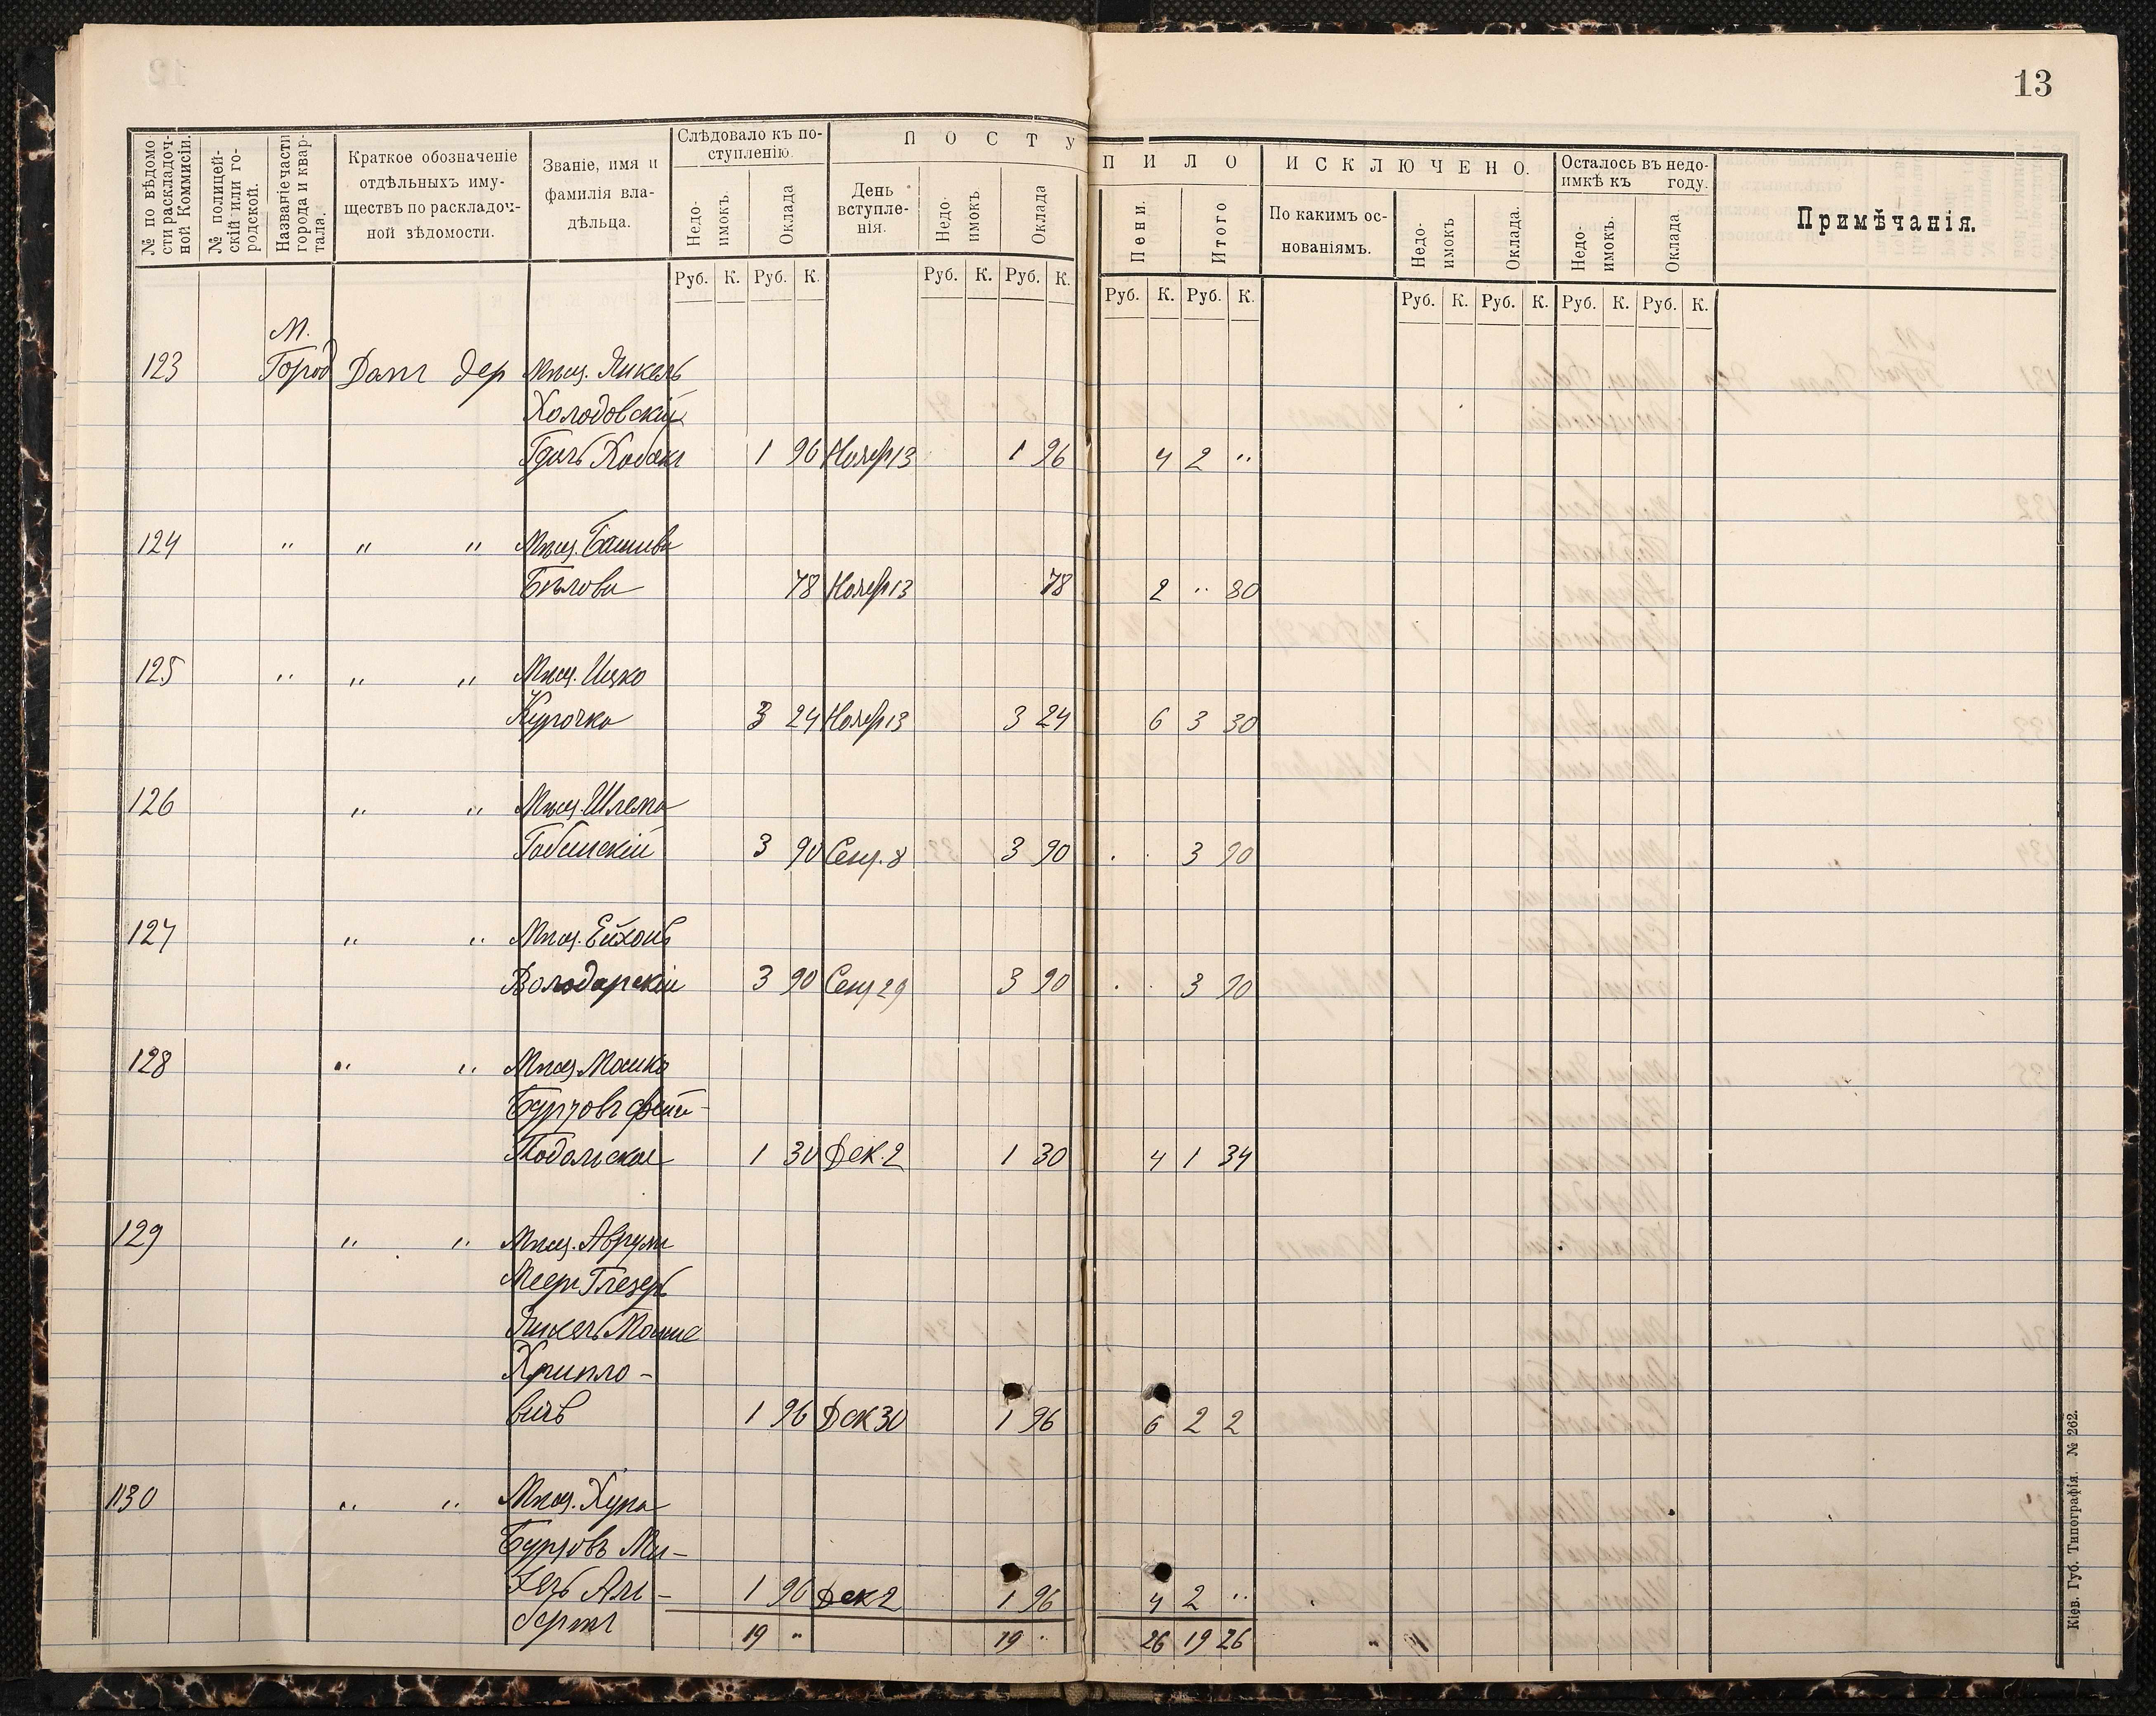 13
№ по вѣдомости раскладочной Коммисіи.
№ полицейскій или городской.
Названіе части города и квартала.
Краткое обозначеніе отдѣльныхъ имуществъ по раскладочной вѣдомости.
Званіе, имя и фамилія владѣльца.
Слѣдовало къ поступленію.
Недоимокъ. Оклада
ПОСТУПИЛО
День вступленія.
Недоимокъ. Оклада
Пени. Итого
ИСКЛЮЧЕНО.
По какимъ основаніямъ.
Недоимокъ Оклада.
Осталось въ недоимкѣ къ году.
Недоимокъ. Оклада.
Примѣчанія.
Руб. К. Руб. К. Руб. К. Руб. К. Руб. К. Руб. К. Руб. К. Руб. К. Руб. К. Руб. К.
М.
123 Город Дом дер Мѣщ. Янкель
Холодовскій
1 96 Нояб 13 1 96 4 2 "
124 " " " Мѣщ. Башева
Бѣлова 78 Нояб 13 78 2 " 80
125 " " " Мѣщ. Ицко
Курочка 3 24 Нояб 13 3 24 6 3 30
126 " " Мѣщ. Шлема
3 90 Сен. 8 3 90 . . 3 90
127 " " Мѣщ.
Володарскій 3 90 Сен 29 3 90 . . 3 90
128 " " Мѣщ. Мошко
Подольская 1 30 Дек. 2 1 30 4 1 34
129 " " Мѣщ. Аврум
Меер Глезеръ
Янкель Мошке
Хрипло-
вичъ 1 96 Дек 30 1 96 6 2 2
130 " " Мѣщ.
1 96 Дек 2 1 96 4 2 "
19 " 19 " 26 19 26
Кіев. Губ. Типографія. № 262.